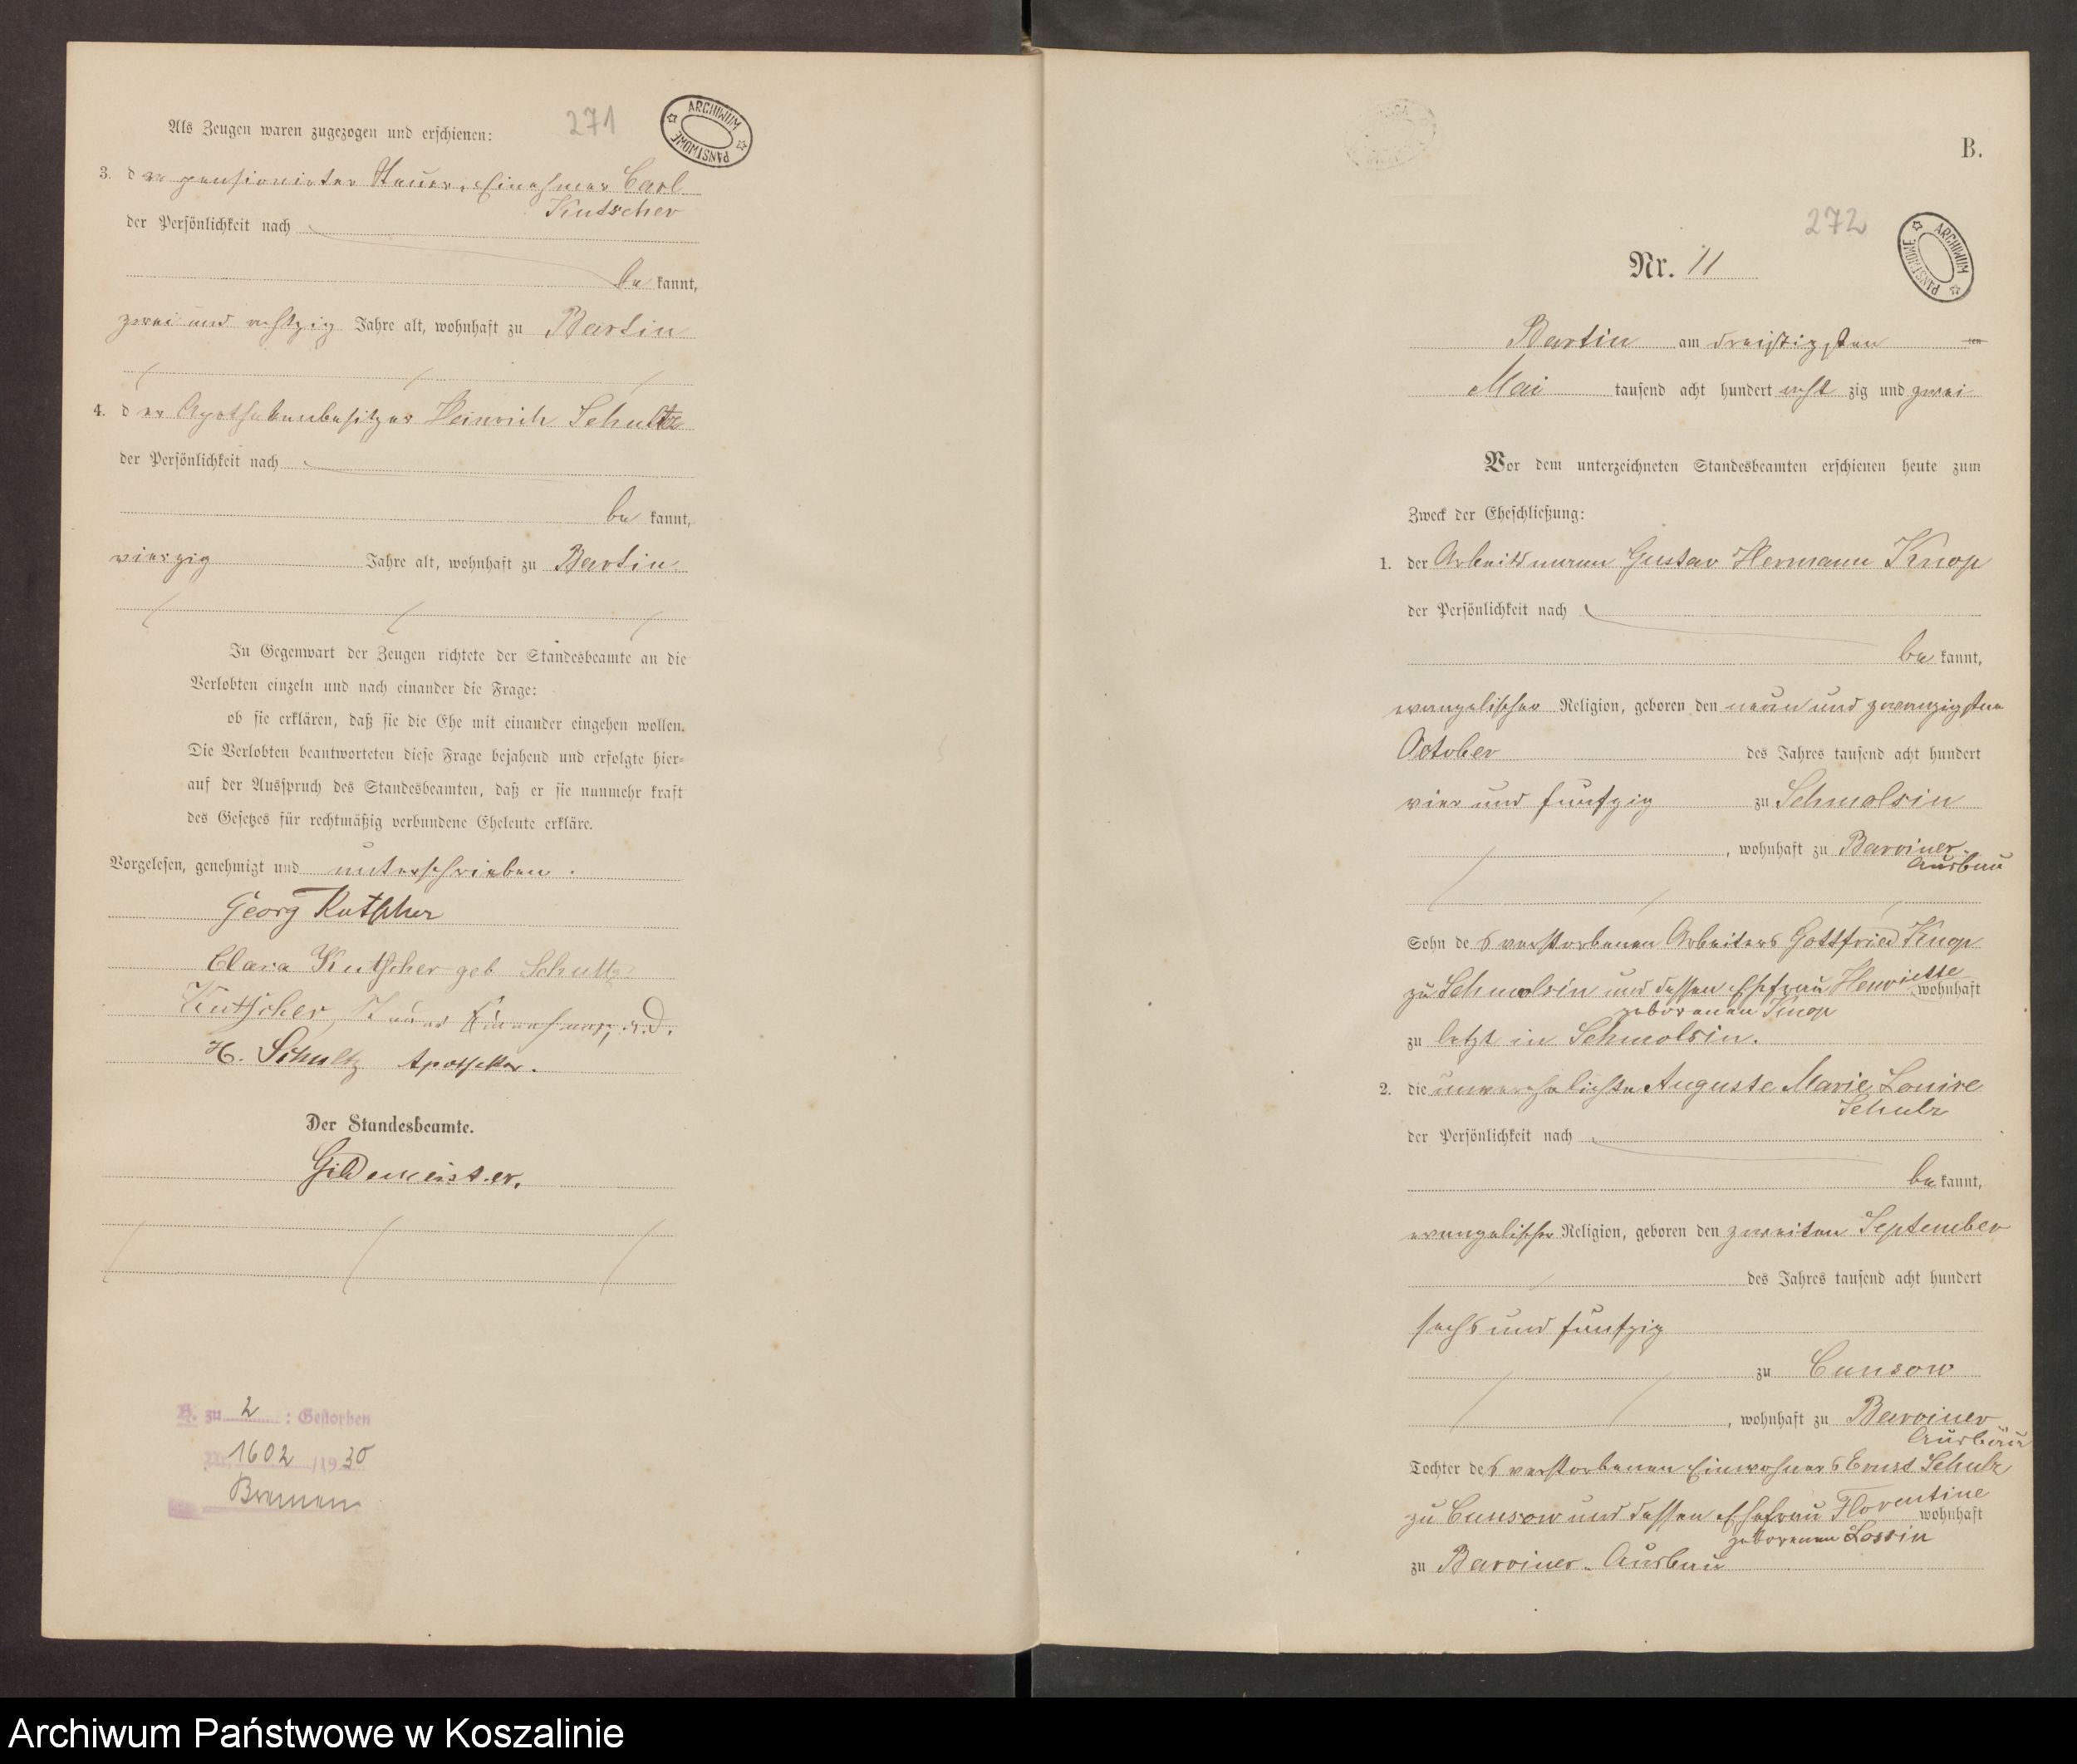 271
ARCHIWUM PAŃSTWOWE
Als Zeugen waren zugezogen und erschienen:
3. der pensionirter Steuer-Einnehmer Carl
Kutscher
der Persönlichkeit nach
be kannt,
zwei und achtzig Jahre alt, wohnhaft zu Bartin
4. der Apothekenbesitzer Heinrich Schultz
der Persönlichkeit nach
be kannt,
vierzig Jahre alt, wohnhaft zu Bartin
In Gegenwart der Zeugen richtete der Standesbeamte an die
Verlobten einzeln und nach einander die Frage:
ob sie erklären, daß sie die Ehe mit einander eingehen wollen.
Die Verlobten beantworteten diese Frage bejahend und erfolgte hier-
auf der Ausspruch des Standesbeamten, daß er sie nunmehr kraft
des Gesetzes für rechtmäßig verbundene Eheleute erkläre.
Vorgelesen, genehmigt und unterschrieben.
Georg Kutscher
Clara Kutscher geb Schultz
Kutscher, Steuer Einnehmer, a.D.
H. Schultz Apotheker.
Der Standesbeamte.
Gildemeister.
H. zu 2 : Gestorben
Nr. 1602 /1930
Bremen
B.
272
ARCHIWUM PAŃSTWOWE
Nr. 11
Bartin am dreißigsten ten
Mai tausend acht hundert acht zig und zwei
Vor dem unterzeichneten Standesbeamten erschienen heute zum
Zweck der Eheschließung:
1. der Arbeitsmann Gustav Hermann Knop
der Persönlichkeit nach
be kannt,
evangelischer Religion, geboren den neun und zwanzigsten
October des Jahres tausend acht hundert
vier und fünfzig zu Schmolsin
, wohnhaft zu Barviner-
Ausbau
Sohn des verstorbenen Arbeiters Gottfried Knop
zu Schmolsin und dessen Ehefrau Henriette
wohnhaft
geborenen Knop
zu letzt in Schmolsin.
2. die unverehelichte Auguste Marie Louise
Schulz
der Persönlichkeit nach
be kannt,
evangelischer Religion, geboren den zweiten September
des Jahres tausend acht hundert
sechs und fünfzig
zu Cunsow
, wohnhaft zu Barviner
Ausbau
Tochter des verstorbenen Einwohners Ernst Schulz
zu Cunsow und dessen Ehefrau Florentine
wohnhaft
geborenen Lossin
zu Barviner-Ausbau
Archiwum Państwowe w Koszalinie